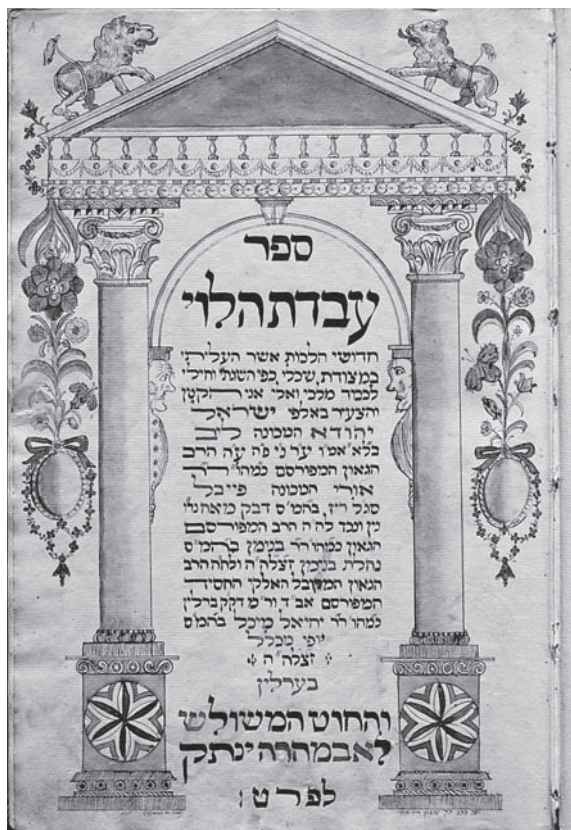 ספר
עבדת הלוי
חדושי הלכות אשר העליתי
במצודת שכלי כפי השגתי וחילי
לכבוד מלכי ואלי אני הקטן
והצעיר באלפי ישראל
יהודא המכונה ליב
בלא אמו ער ני פה עה הרב
הגאון המפורסם כמהורר
אורי המכונה פייבל
סגל ריז, בהמ"ס דבק מאח
נין ונכד לה"ה הרב המפורסם
הגאון כמהורר בנימן בהמ"ס
נחלת בנימן זצלה"ה ולהה הרב
הגאון המקובל האלקי החסיד
המפורסם אב"ד ור"מ דקק ברלין
כמהורר יחיאל מיכל בהמ"ס
יופי מכלל
זצלה"ה
בערלין
והחוט המשולש
לא במהרה ינתק
לפרט: